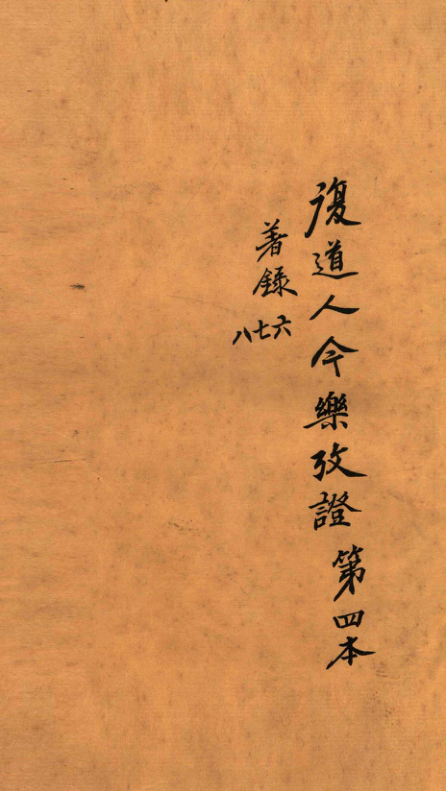 復道人今樂攷證 第四本
著錄
八七六